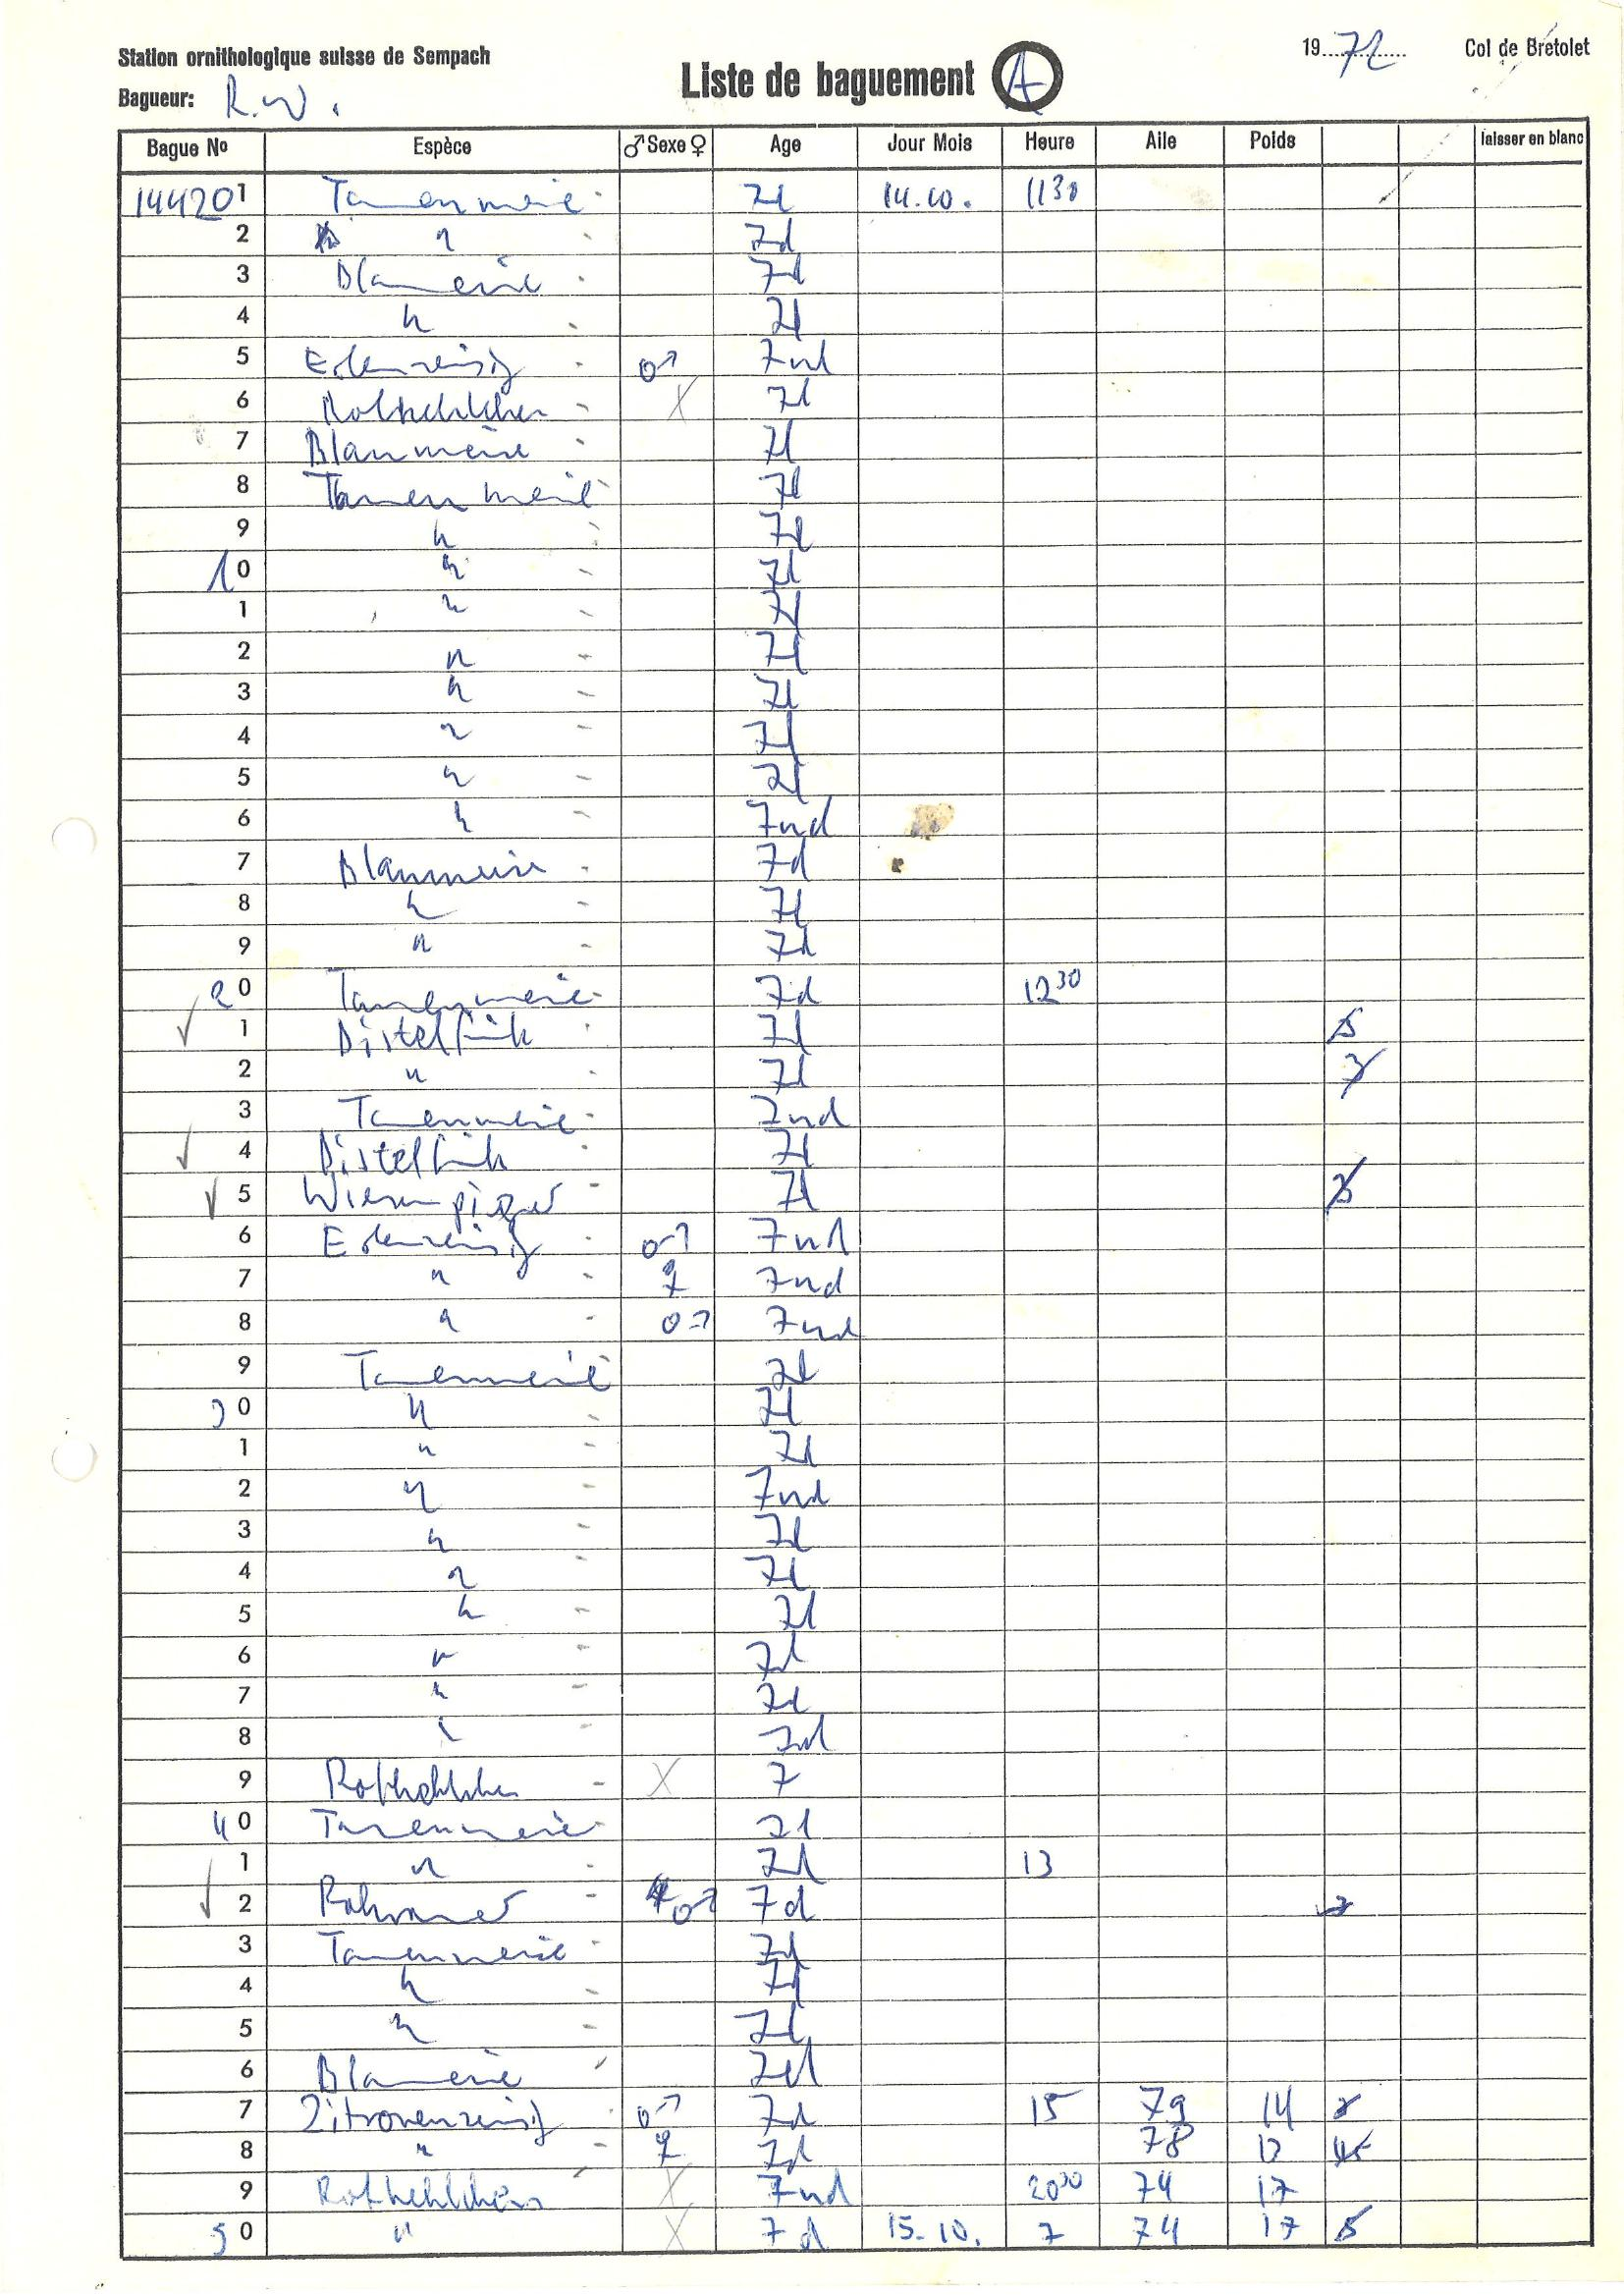 Station ornithologique suisse de Sempach
Bagueur: R.W.
Liste de baguement A
1972 Col de Bretolet
Bague No Espèce ♂ Sexe ♀ Age Jour Mois Heure Aile Poids laisser en blanc
144201 Tannenmeise 7d 14.10. 1130
2 " 7d
3 Blaumeise 7d
4 " 7d
5 Erlenzeisig ♂ 7nd
6 Rotkehlchen X 7d
7 Blaumeise 7d
8 Tannenmeise 7d
9 " 7d
10 " 7d
1 " 7d
2 " 7d
3 " 7d
4 " 7d
5 " 7d
6 " 7nd
7 Blaumeise 7d
8 " 7d
9 " 7d
20 Tannenmeise 7d 1230
✓ 1 Distelfink 7d
2 " 7d
3 Tannenmeise 7nd
✓ 4 Distelfink 7d
✓ 5 Wiesenpieper 7d
6 Erlenzeisig ♂ 7nd
7 " ♀ 7nd
8 " ♂ 7nd
9 Tannenmeise 7d
30 " 7d
1 " 7d
2 " 7nd
3 " 7d
4 " 7d
5 " 7d
6 " 7d
7 " 7d
8 " 7d
9 Rotkehlchen X 7
40 Tannenmeise 7d
1 " 7d 13
✓ 2 ♂ 7d
3 Tannenmeise 7d
4 " 7d
5 " 7d
6 Blaumeise 7d
7 Zitronenzeisig ♂ 7d 15 79 14
8 " ♀ 7d 78 13
9 Rotkehlchen X 7nd 2030 74 17
50 " X 7d 15.10. 7 74 17